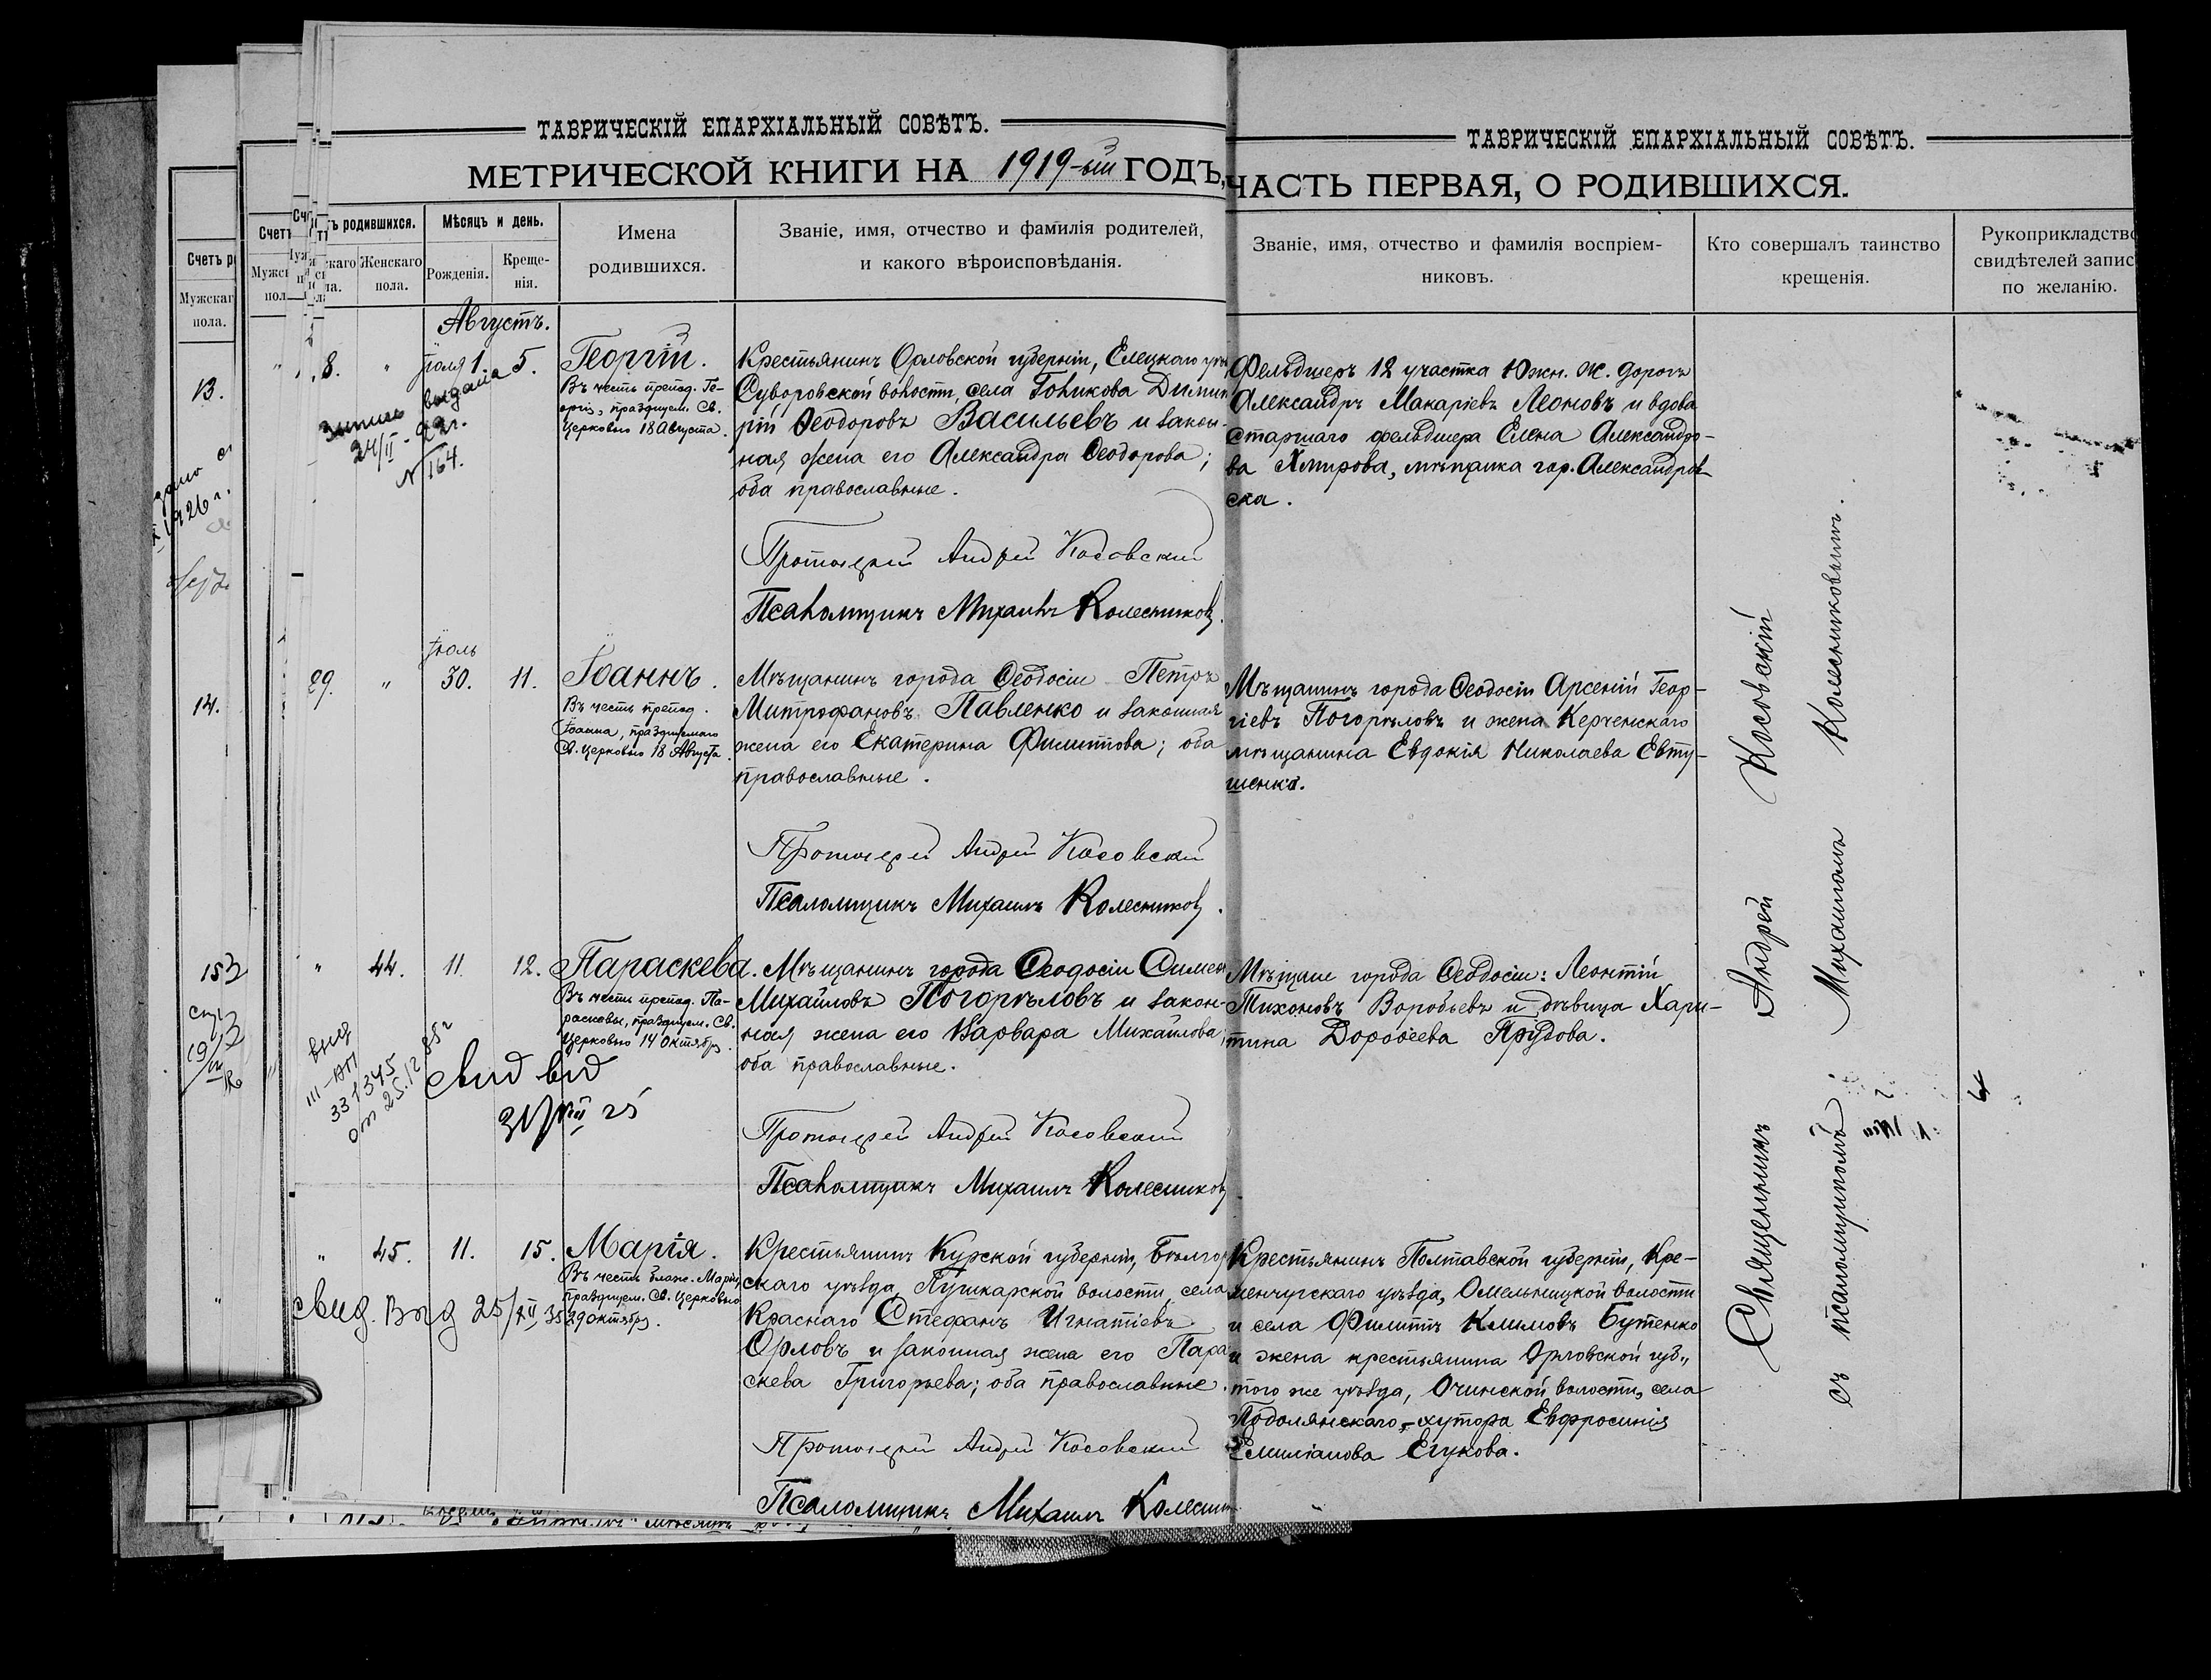 ТАВРИЧЕСКІЙ ЕПАРХІАЛЬНЫЙ СОВѢТЪ.
МЕТРИЧЕСКОЙ КНИГИ НА 1919-ый ГОДЪ,
Счетъ
Мужскаг
пола.
Счетъ
ъ родившихся.
Мѣсяцъ и день.
Женскаго
пола.
Рожденія.
Креще-
нія.
Имена
родившихся.
Званіе, имя, отчество и фамилія родителей,
и какого вѣроисповѣданія.
Августъ.
13.
8.
"
Іюля 1.
5.
Георгій.
Въ честь препод. Ге-
оргія, празднуем. Св.
Церковью 18 Августа.
выдана
24/II-
N 164.
Крестьянинъ Орловской губерніи, Елецкаго
Суворовской волости, села Голикова Дими
рій Ѳеодоровъ Васильевъ и закон-
ная жена его Александра Ѳеодорова;
оба православные.
Протоіерей Андрей Косовский
Псаломщикъ Михаилъ Колесниковъ.
14.
29.
"
Іюль
30.
11.
Іоаннъ.
Въ честь препод.
Іоанна, празднуемаго
Св. Церковью 18 Августа.
Мѣщанинъ города Ѳеодосіи Петръ
Митрофановъ Павленко и законная
жена его Екатерина Филиппова; оба
православные.
Протоіерей Андрей Косовский
Псаломщикъ Михаилъ Колесниковъ.
"
44.
11.
12.
Параскева.
Въ честь препод. Па-
раскевы, празднуем. Св.
Церковью 14 Октября.
331345
от 25.12.85г
свид выд
25
Мѣщанинъ города Ѳеодосіи Симео
Михайловъ Погорѣловъ и закон-
ная жена его Варвара Михайлова;
оба православные.
Протоіерей Андрей Косовский
Псаломщикъ Михаилъ Колесниковъ
"
45.
11.
15.
Марія.
Въ честь блаж. Маріи,
празднуем. Св. Церковью
29 октября.
свид. выд 25/XII 35
Крестьянинъ Курской губерніи, Бѣлгор
скаго уѣзда, Пушкарской волости, села
Краснаго Стефанъ Игнатіевъ
Орловъ и законная жена его Пара
скева Григорьева; оба православные.
Протоіерей Андрей Косовский
Псаломщикъ Михаилъ Колесни
ТАВРИЧЕСКІЙ ЕПАРХІАЛЬНЫЙ СОВѢТЪ.
ЧАСТЬ ПЕРВАЯ, О РОДИВШИХСЯ.
Званіе, имя, отчество и фамилія воспріем-
никовъ.
Кто совершалъ таинство
крещенія.
Рукоприкладство
свидѣтелей запис
по желанію.
Фельдшеръ 12 участка Южн. Ж. дорогъ
Александръ Макаріевъ Леоновъ и вдова
старшаго фельдшера Елена Александро-
ва Хмирова, мѣщанка гор. Александров-
ска.
Мѣщанинъ города Ѳеодосіи Арсеній Геор-
гіевъ Погорѣловъ и жена Керченскаго
мѣщанина Евдокія Николаева Евту-
шенко.
Мѣщане города Ѳеодосіи: Леонтій
Тихоновъ Воробьевъ и дѣвица Хари-
тина Дороѳеева Прудова.
Крестьянинъ Полтавской губерніи, Кре-
менчугскаго уѣзда, Омельницкой волости
и села Филиппъ Климовъ Бутенко
и жена крестьянина Орловской губ.,
того же уѣзда, Очинской волости, села
Подолянскаго-хутора Евфросинія
Емиліанова Егунова.
Священникъ Андрей Косовскій
съ псаломщикомъ Михаиломъ Колесниковымъ.